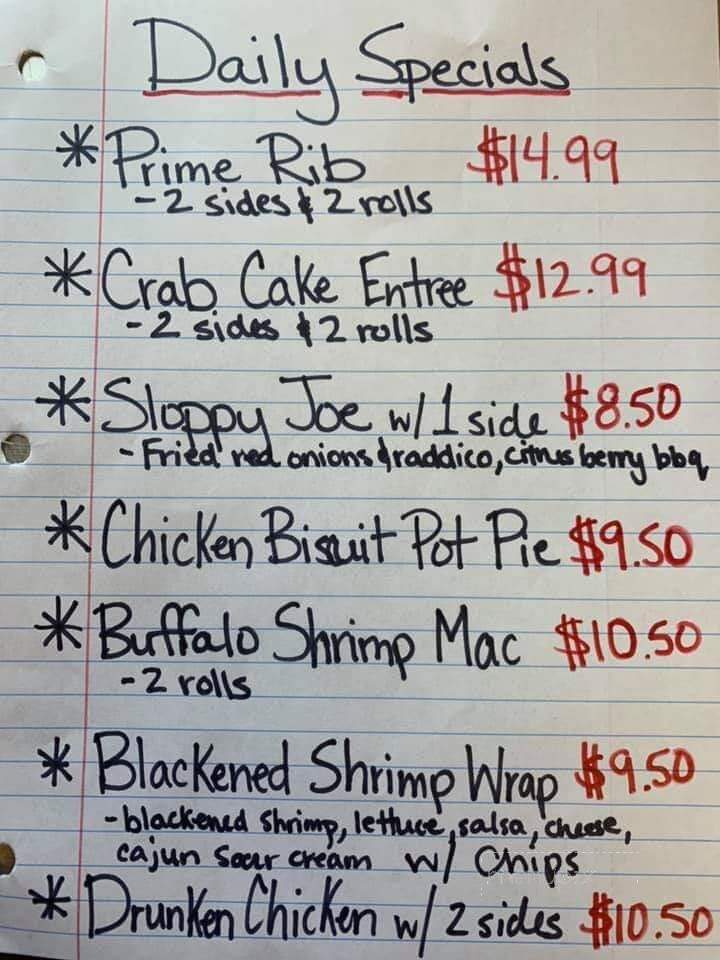 Daily Specials
* Prime Rib $14.99
- 2 sides & 2 rolls
* Crab Cake Entree $12.99
- 2 sides & 2 rolls
* Sloppy Joe w/ 1 side $8.50
- Fried red onions & raddico, citrus berry bbq
* Chicken Bisuit Pot Pie $9.50
* Buffalo Shrimp Mac $10.50
- 2 rolls
* Blackened Shrimp Wrap $9.50
- blackened shrimp, lettuce, salsa, cheese,
cajun sour cream w/ Chips
* Drunken Chicken w/ 2 sides $10.50